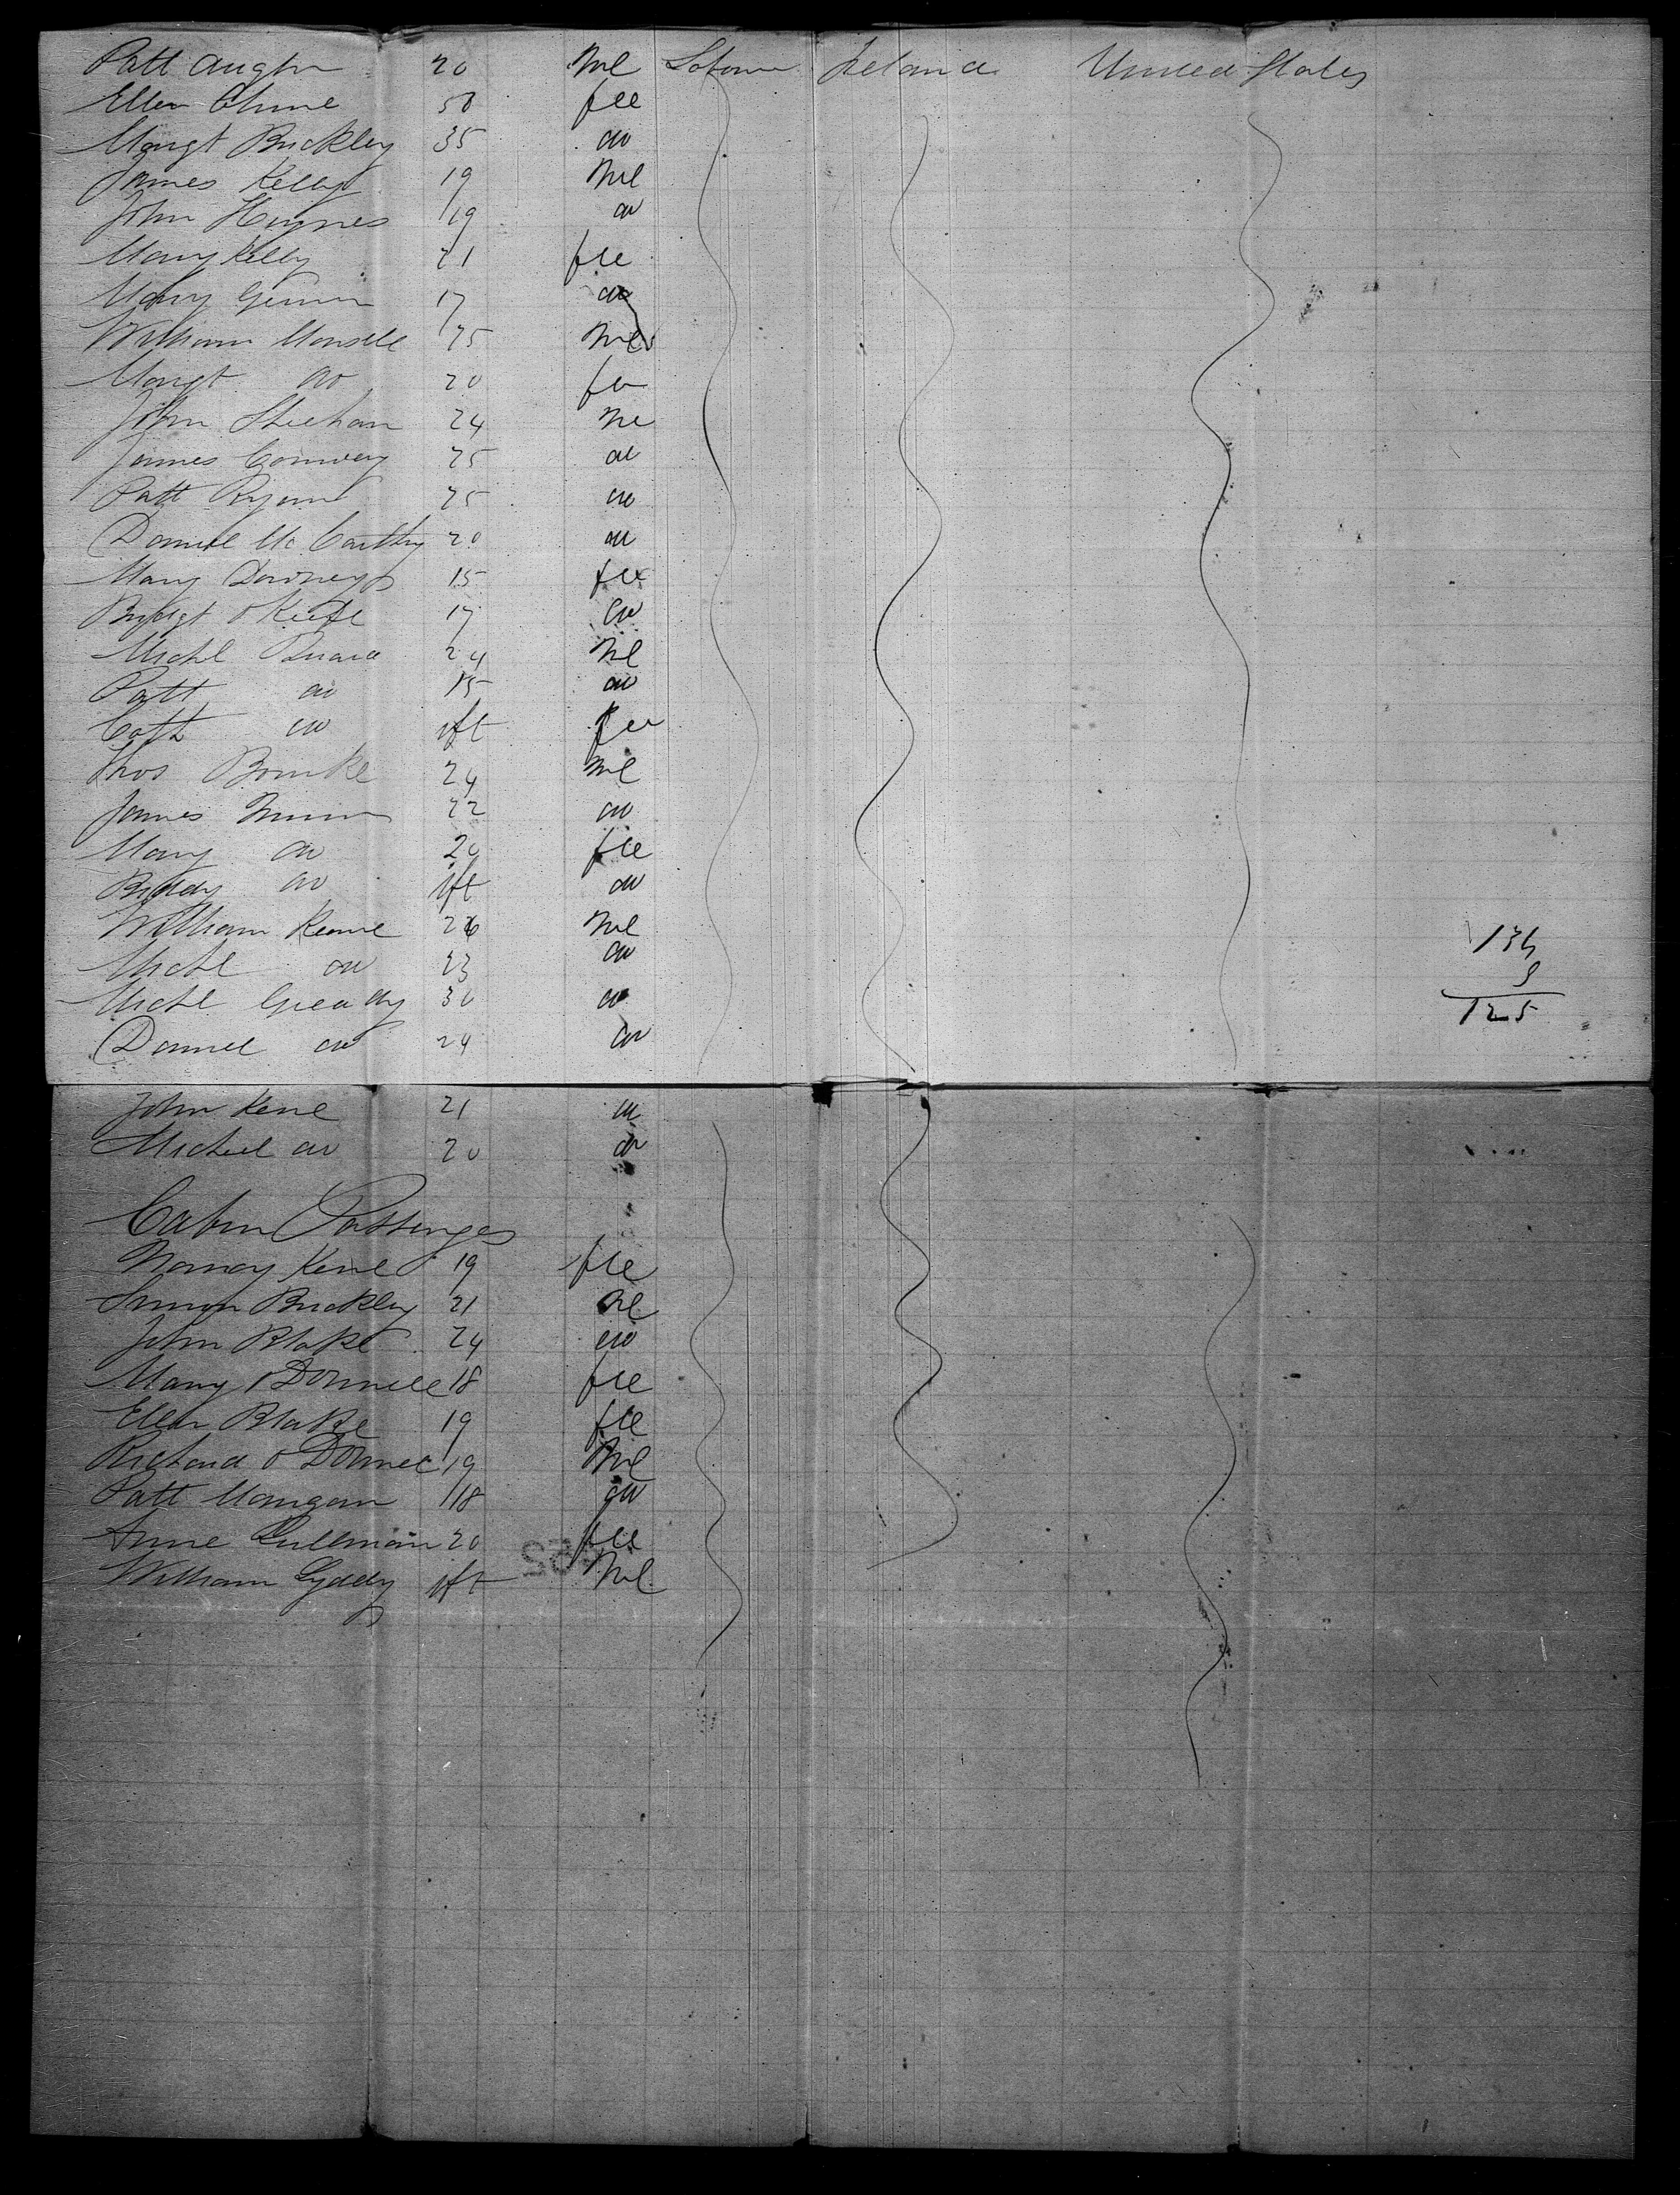 Patt Aughn 20 Ml Labour Ireland United States
Ellen Clune 50 fee
Margt Buckley 35 do
James Kelly 19 Ml
John Hynes 19 do
Mary Kelly 21 fle
Mary 17 do
William Monsell 25 Ml
Margt do 20 fe
John Sheehan 24 Me
James Conway 25 do
Patt Ryan 25 do
Daniel Mc Carthy 20 do
Mary Downey 15 fle
Bridgt O Keefe 17 do
Michl 24 Ml
Patt do 15 do
Cath do ift fe
Thos Bourke 24 Ml
James 22 do
Mary do 20 fle
Biddy do ift do
William Keane 26 Ml
Michl do 23 do
Michl Gready 30 do
Daniel do 24 do
125
John Kene 21 do
Michael do 20 do
Cabin Passengers
Nancy Kene 19 fle
Simon Buckley 21 Ml
John Blake 24 do
Mary O Donnell 18 fle
Ellen Blake 19 fle
Richard O Donnel 19 Ml
Patt Mangan 18 do
Anne Cullinan 20 fle
William Gyddy ift Ml